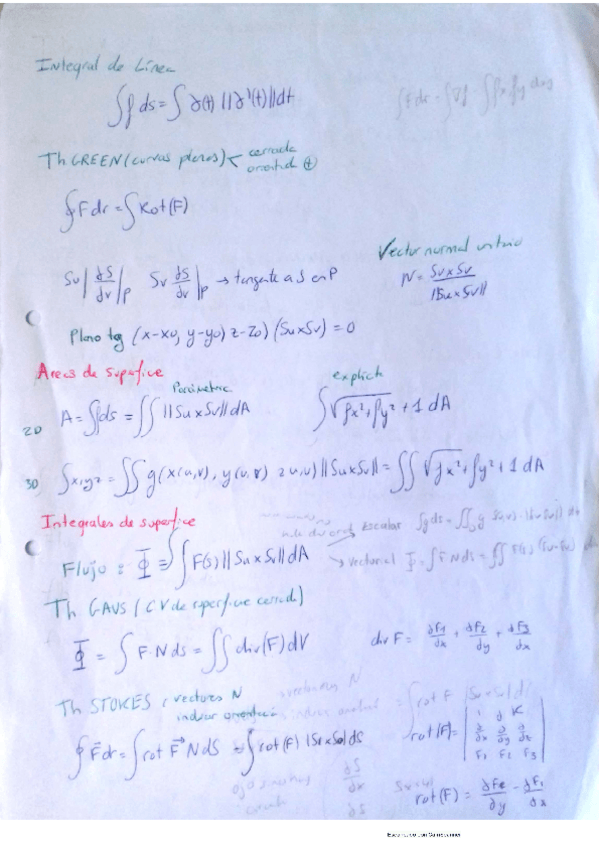 Integral de Línea
∫f ds = ∫ ∂(t) ||∂'(t)|| dt
∫Fdr = ∫∇f · ∫fx fy dxy
Th GREEN (curvas planas) < cerrada
orientid ⊕
∮Fdr = ∫Rot(F)
Vector normal unitario
Su|∂S/∂v|p Sv ∂S/∂v|p → tangente a S en P
N = Su×Sv / ||Su×Sv||
Plano tg (x-x0, y-y0) z-z0) (Su×Sv) = 0
Areas de superfice
Parametrica
explicit
2D A = ∫∫ds = ∫∫ ||Su×Sv|| dA ∫√fx²+fy²+1 dA
3D ∫x,yz = ∫∫ g(x(u,v), y(u,v) z u,v) ||Su×Sv|| = ∫∫ √fx²+fy²+1 dA
Integrales de superfice
Escalar ∫g ds = ∫∫ g
Flujo : Φ = ∫ F(s) ||Su×Sv|| dA
→ vectorial Φ = ∫F·N ds = ∫∫ F(s) (Su×Sv)
Th GAUS / CV de superfice cerrada)
Φ = ∫ F·N ds = ∫∫ div(F) dV
div F = ∂F1/∂x + ∂F2/∂y + ∂F3/∂x
Th STOKES : vectores N
indicar orientación
∮F⃗dr = ∫rot F⃗ N dS → ∫rot(F) |Su×Sv| dS
rot(F) = | i j K
∂/∂x ∂/∂y ∂/∂z
F1 F2 F3 |
∂S/∂x
rot(F) = ∂F2/∂y - ∂F1/∂x
Escaneado con CamScanner